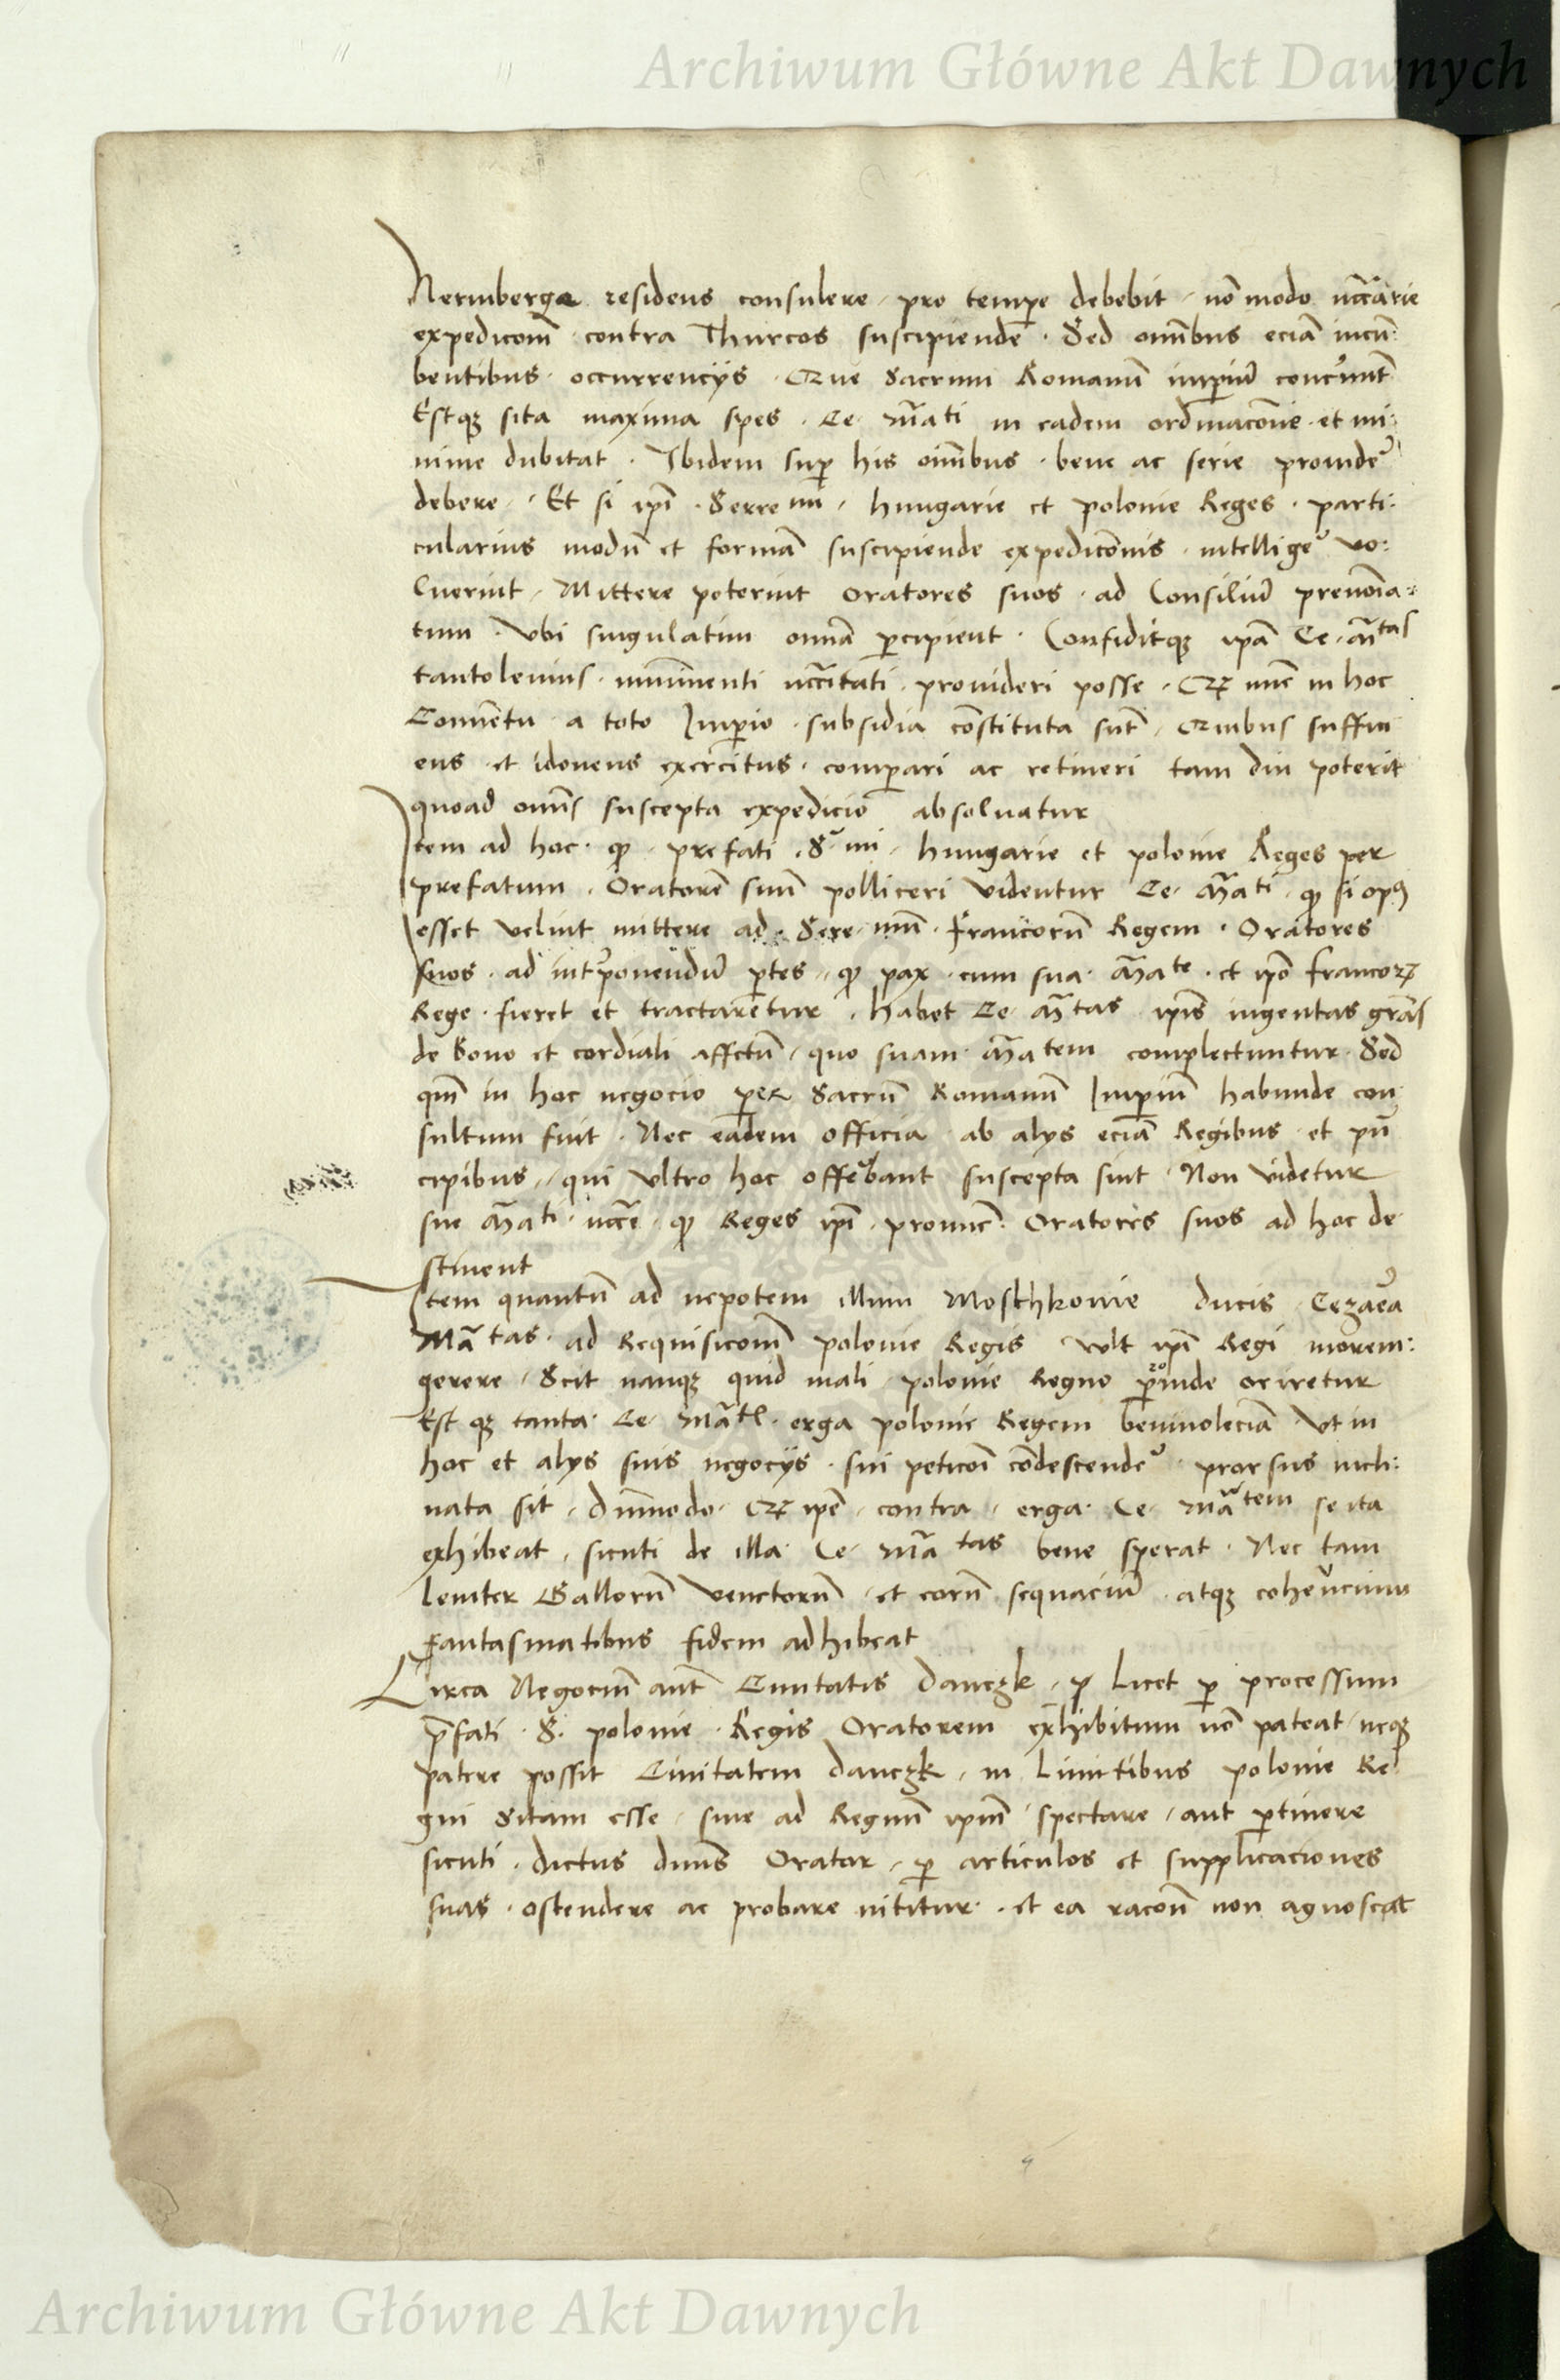 Archiwum Główne Akt Dawnych
Nermberge residens consulere · pro tempe debebit · nõ modo nccãrie
expedicom̃ · contra Thurcos suscipiende · Sed om̃ibus eciã incũ:
bentibus · occurrencÿs · Que Sacrum Romanũ imp̃iũ concernũt
Estqz sita maxima spes · Ce · Mãti in eadem ordinacõne · et mi:
nime dubitat · Ibidem sup his om̃ibus · bene ac serie prouide
debere · Et si ip̃i · Serre mi · hungarie et polonie Reges · parti:
cularius modũ et formã suscipiende expedicõnis · intellige vo:
luerint · Mittere poterint oratores suos · ad Consiliũ prenom̃a:
tum · Vbi singulatim om̃ia p̱cipient · Confiditqz ip̃a Ce · Mãtas
tantoleuius · imminenti nccĩtati · prouideri posse · Cũ nũc in hoc
Conuentu · a toto Imp̱io · subsidia cõstituta sũt · Quibus suffici
ens et idoneus exercitus · comp̱ari ac retineri tam diu poterit
quoad om̃is suscepta expedicio absoluatur
Item ad hoc · qͦ · prefati · S · mi · hungarie et polonie Reges per
prefatum · Oratorẽ suũ polliceri videntur Ce · Mãti · qͦ si opꝰ
esset velint mittere ad · Sere · mũ · Francorũ Regem · Oratores
suos · ad int̓ponendũ p̱tes · qͦ pax · cum sua · Mãte · et ip̃o francoꝝ
Rege · fieret et tractarẽtur · habet Ce · Mãtas ip̃is ingentas grãs
de bono et cordiali affctũ · quo suam · Mãtem complectuntur · Sed
qm̃ in hoc negocio per Sacrũ Romanũ Imp̱iũ habunde con
sultum fuit · Nec eadem officia · ab alÿs eciã Regibus · et prĩ
cipibus · qui vltro hoc offerebant suscepta sint · Non videtur
sue Mãti · nccẽ · qͦ Reges ip̃i · pronũc · Oratores suos ad hoc de
stinent
Item quantũ ad nepotem illum Moschkouie ducis · Cezarea
Mãtas · ad Requisicom̃ polonie Regis vult ip̃i Regi morem:
gerere · Scit nanqz quid mali · polonie Regno p̱inde oriretur
Est qz tanta · Ce · Mãtis · erga polonie Regem beniuolẽciã · Vt in
hoc et alÿs suis negocÿs · sui peticõi cõdescende · prorsus incli:
nata sit · dũmodo · Cũ ip̃e · contra · erga · Ce · Mãtem se ita
exhibeat · sicuti de illa · Ce · Mãtas bene sperat · Nec tam
leuiter Gallorũ Venetorũ · et eorũ sequaciũ · atqz coherencium
Fantasmatibus fidem adhibeat
Circa Negociũ aũt Ciuitatis Danczk · qͦ licet p̱ processum
p̃fati · S · polonie · Regis Oratorem exhibitum nõ pateat · neqz
patere possit Ciuitatem danczk · in limitibus polonie Re
gni Sitam esse · siue ad Regnũ ip̃m spectare · aut p̱tinere
sicuti · dictus dñus Orator · p̱ articulos et supplicaciones
suas · ostendere ac probare nititur · et ea racoñ non agnoscat
Archiwum Główne Akt Dawnych